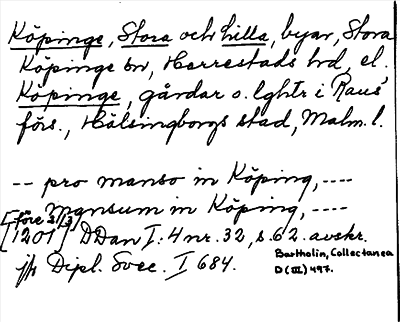 Köpinge, Stora och Lilla, byar, Stora
Köpinge sn, Herrestads hd, el.
Köpinge, gårdar o. lghtr i Raus
förs., Hälsingborgs stad, Malm. l.
-- pro manso in Köping, ----
mansum in Köping, ----
[före 3/3
1201] DDan I:4 nr. 32, s. 62. avskr.
jfr Dipl. Svec. I 684.
Bartholin, Collectanea
D (III) 497.